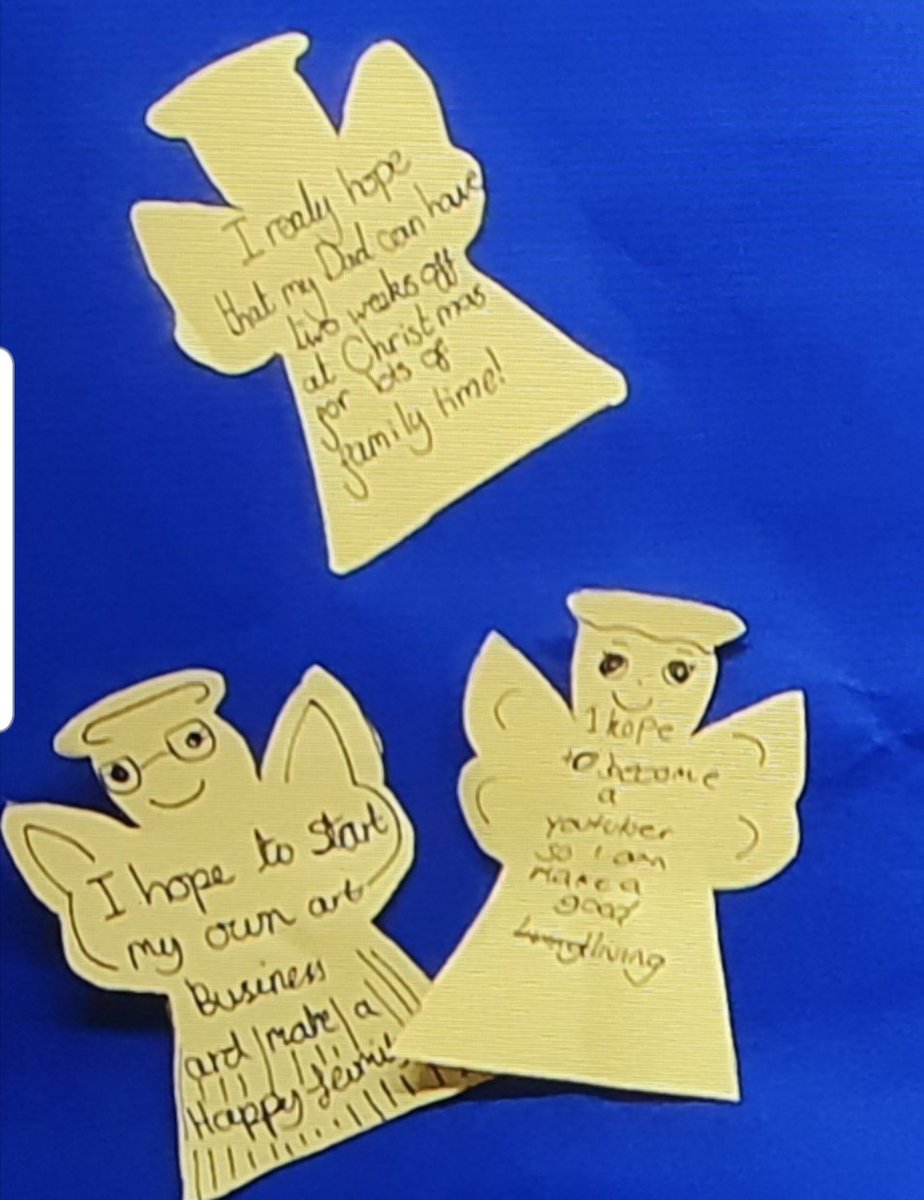 I really hope
that my Dad can have
two weeks off
at Christmas
for lots of
family time!
I hope to start
my own art
Business
and make a
Happy
I hope
to become
a
youtuber
so I can
make a
good
living